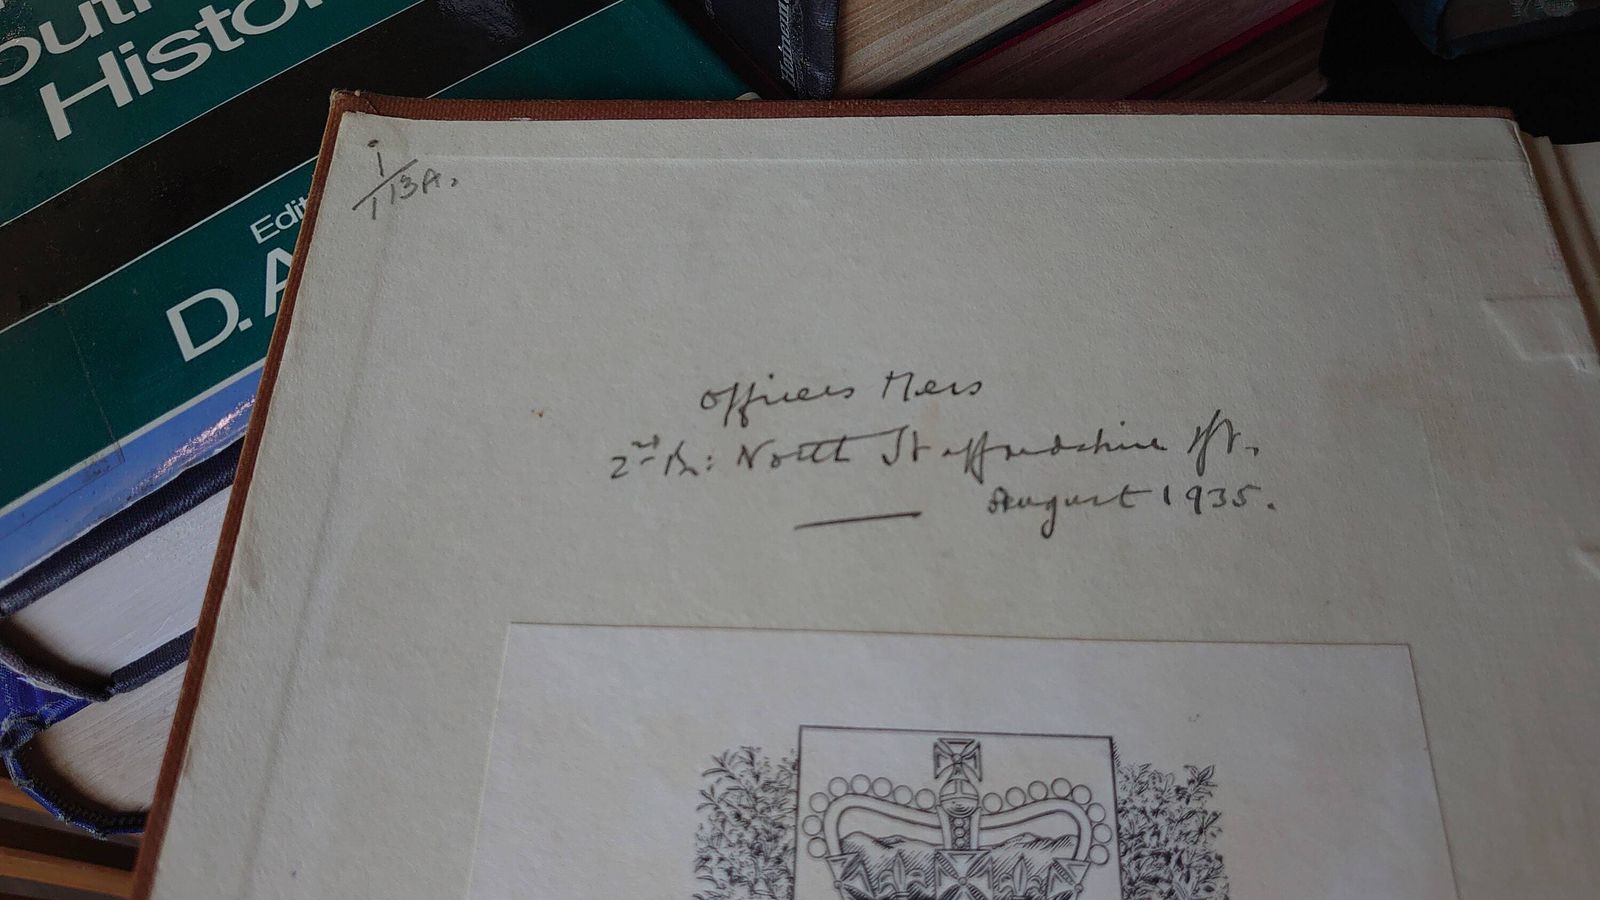 outh
Histo
Edit
D. A
1/113A.
Officers Mess
2nd Bn: North Staffordshire Rgt.
August 1935.